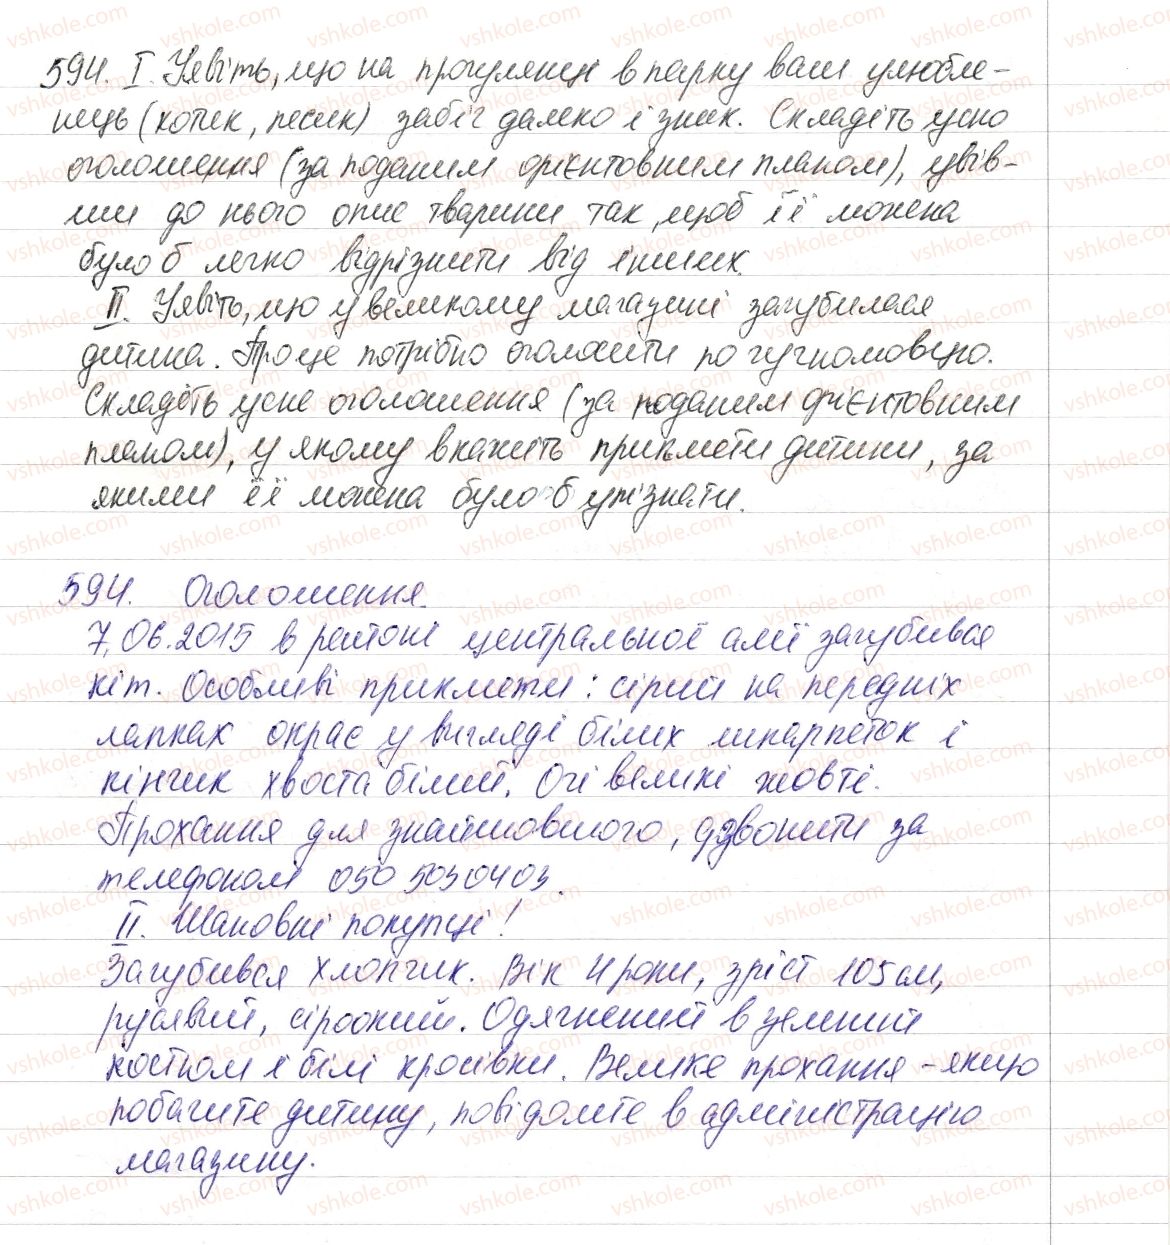 594. I. Уявіть, що на прогулянці в парку ваш улюбле-
нець (котик, песик) забіг далеко і зник. Складіть усно
оголошення (за поданим орієнтовним планом), увів-
ши до нього опис тварини так, щоб її можна
було б легко відрізнити від інших.
II. Уявіть, що у великому магазині загубилася
дитина. Про це потрібно оголосити по гучномовцю.
Складіть усне оголошення (за поданим орієнтовним
планом), у якому вкажіть прикмети дитини, за
якими її можна було б упізнати.
594. Оголошення.
7.06.2015 в районі центральної алії загубився
кіт. Особливі прикмети: сірий на передніх
лапках окрас у вигляді білих шкарпеток і
кінчик хвоста білий. Очі великі жовті.
Прохання для знайшовшого, дзвонити за
телефоном 050 5030403.
II. Шановні покупці!
Загубився хлопчик. Вік 4 роки, зріст 105 см,
русявий, сіроокий. Одягнений в зелений
костюм і білі кросівки. Велике прохання - якщо
побачите дитину, повідомте в адміністрацію
магазину.